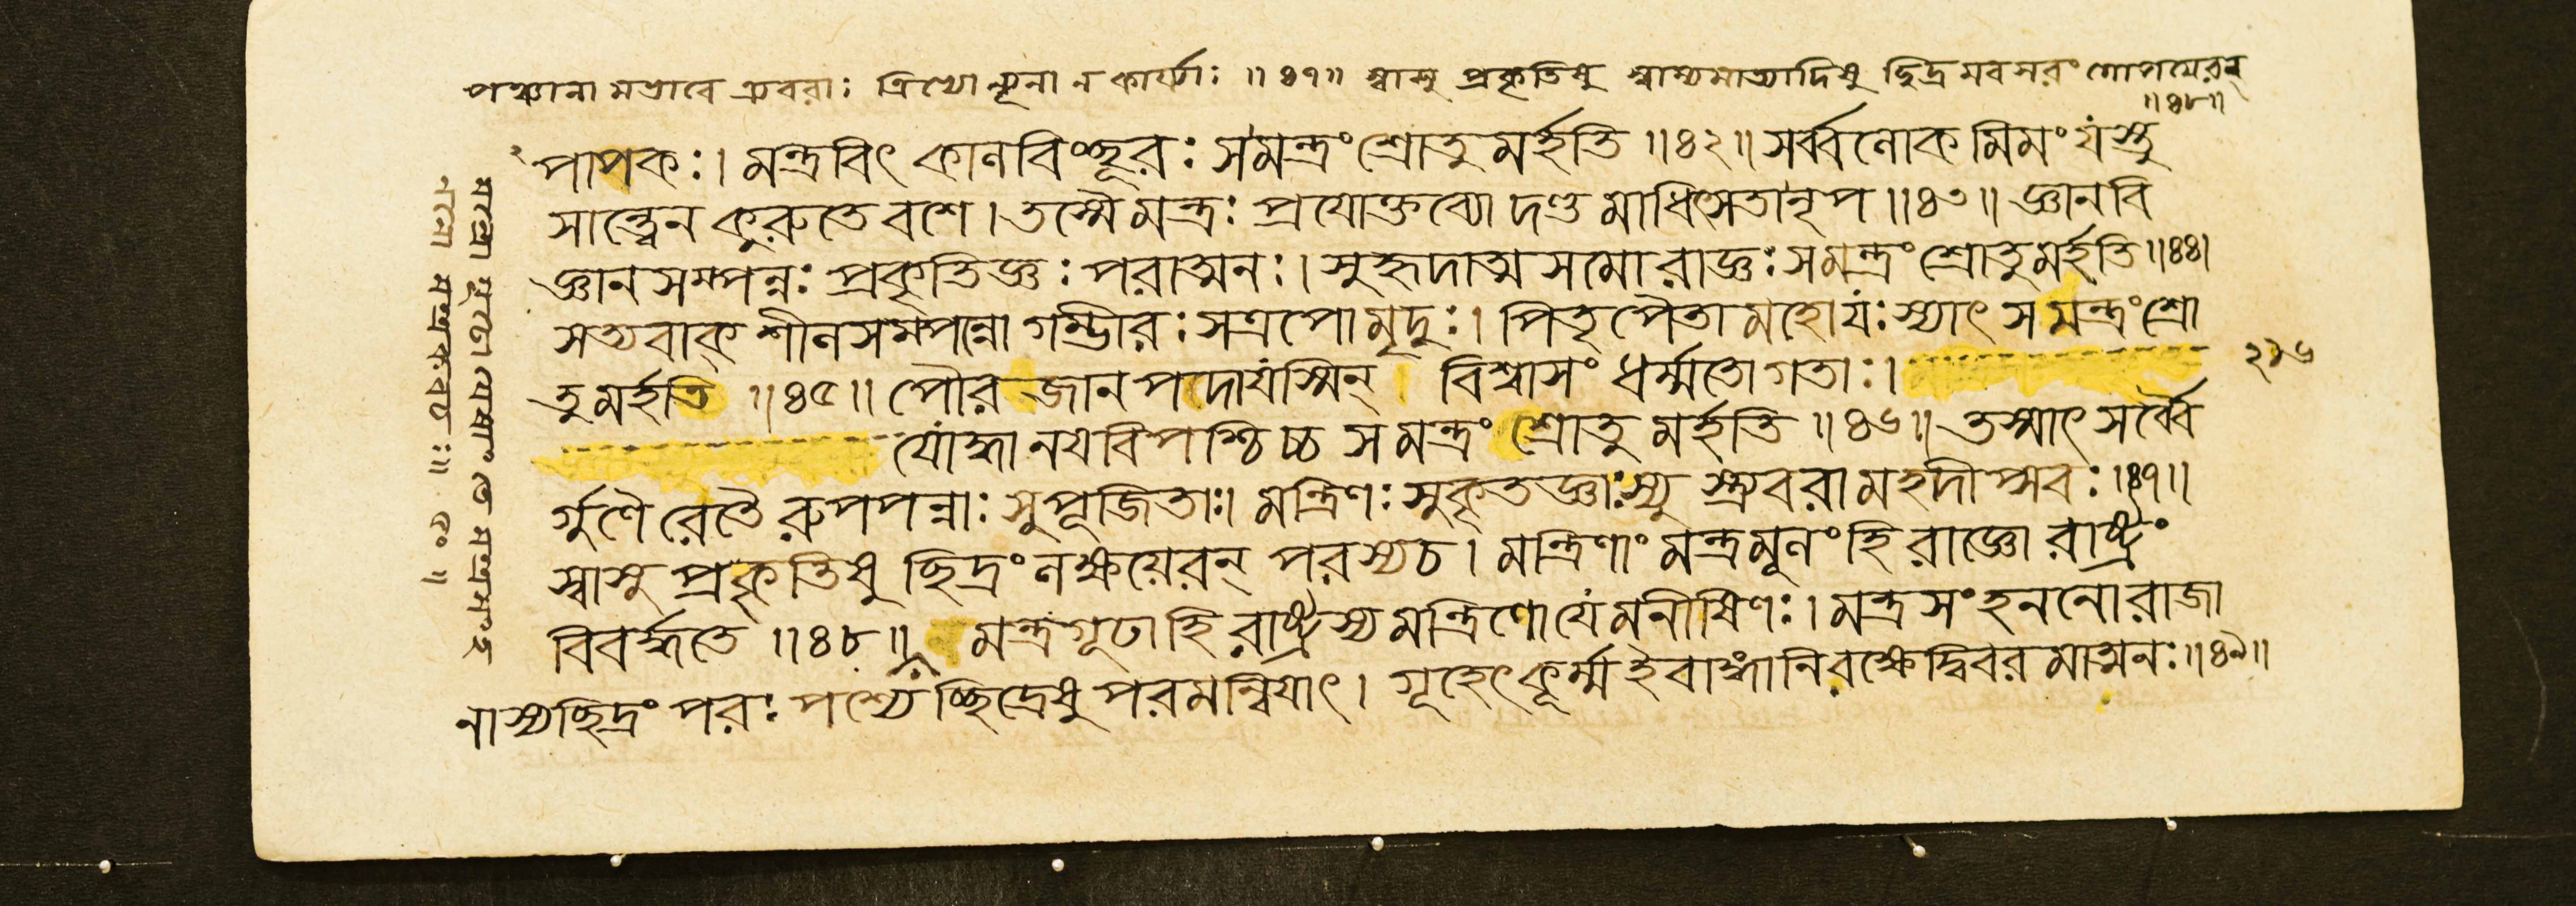 পঞ্চানামভাবে ত্র্যবরাঃ ত্রিভ্যো ন্যূনা ন কার্য্যাঃ ॥ ৪৭॥ স্বাসু প্রকৃতিষু স্বাম্যমাত্যাদিষু ছিদ্রমবসরং গোপায়েরন্
॥৪৮॥
পাপকঃ। মন্ত্রবিৎ কালবিচ্ছূরঃ সমন্ত্রং শ্রোতুমর্হতি ॥৪২॥ সর্ব্বলোকমিমং যস্তু
সান্ত্বেন কুরুতে বশে। তস্মৈ মন্ত্রঃ প্রযোক্তব্যো দণ্ডমাধিৎসতা নৃপ ॥৪৩॥ জ্ঞানবি
জ্ঞানসম্পন্নঃ প্রকৃতিজ্ঞঃ পরাত্মনঃ। সুহৃদাত্মসমো রাজ্ঞঃ সমন্ত্রং শ্রোতুমর্হতি ॥৪৪।
সত্যবাক্ শীলসম্পন্নো গম্ভীরঃ সত্রপো মৃদুঃ। পিতৃপৈতামহো যঃ স্যাৎ স মন্ত্রং শ্রো
তুমর্হতি ॥৪৫॥ পৌরজানপদা যস্মিন্ বিশ্বাসং ধর্ম্মতো গতাঃ।
২৯৬
যোদ্ধা নয়বিপশ্চিচ্চ স মন্ত্রং শ্রোতুমর্হতি ॥৪৬॥ তস্মাৎ সর্ব্বৈ
র্গুণৈরেতৈরুপপন্নাঃ সুপূজিতাঃ। মন্ত্রিণঃ সুকৃতজ্ঞাঃ স্যু স্ত্র্যবরা মহদীপ্সবঃ ॥৪৭॥
স্বাসু প্রকৃতিষু ছিদ্রং লক্ষয়েরন্ পরস্যচ। মন্ত্রিণাং মন্ত্রমূলং হি রাজ্ঞো রাষ্ট্রং
বিবর্দ্ধতে ॥৪৮॥ মন্ত্রগূঢ়া হি রাষ্ট্রস্য মন্ত্রিণো যে মনীষিণঃ। মন্ত্রসংহননো রাজা
নাস্যচ্ছিদ্রং পরঃ পশ্যেচ্ছিদ্রেষু পরমন্বিয়াৎ। গূহেৎ কূর্ম্ম ইবাঙ্গানি রক্ষেদ্বিবরমাত্মনঃ ॥৪৯॥